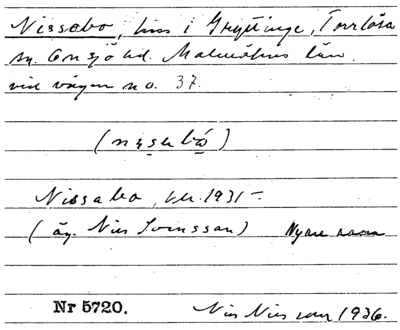 Nissabo, hus i Gryttinge, Torrlösa
sn. Onsjö hd. Malmöhus län.
vid vägen no. 37.
(nisabo)
Nissabo, bl. 1931 –
(äg. Nils Svensson) Nyare namn
Nr 5720. Nils Nilsson 1936.